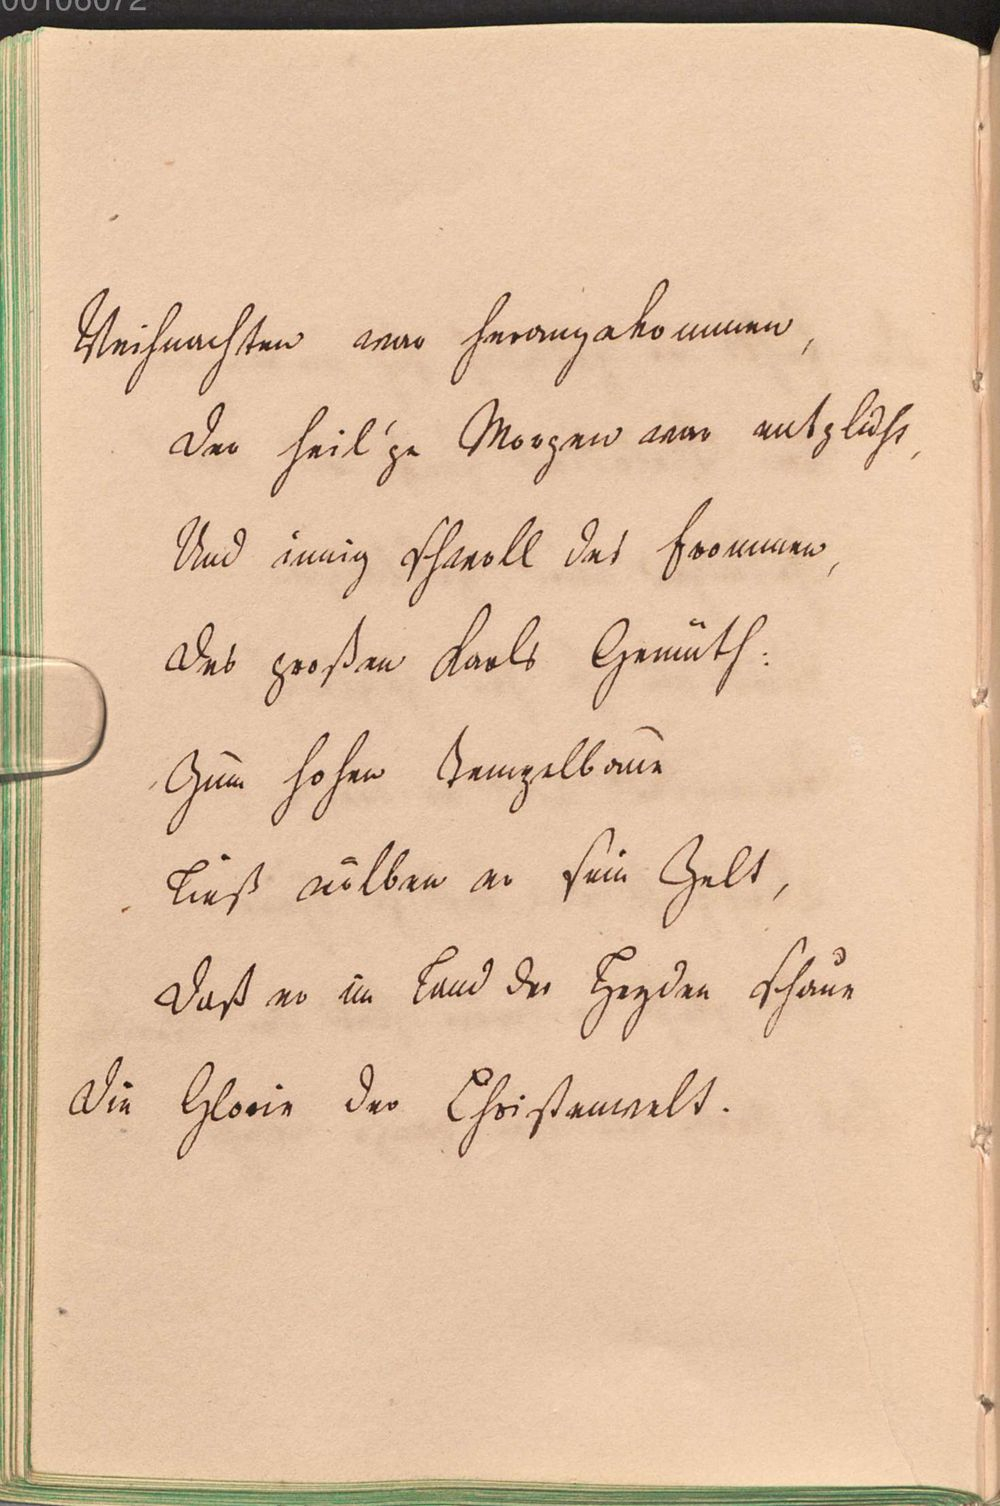 00106072
Weihnachten war herangekommen,
Der heil'ge Morgen war entglüht,
Und innig schwoll des frommen,
Des großen Karls Gemüth:
Zum hohen Tempelbaue
Ließ wölben er sein Zelt,
Daß er im Land der Heyden schaue
Die Glorie der Christenwelt.